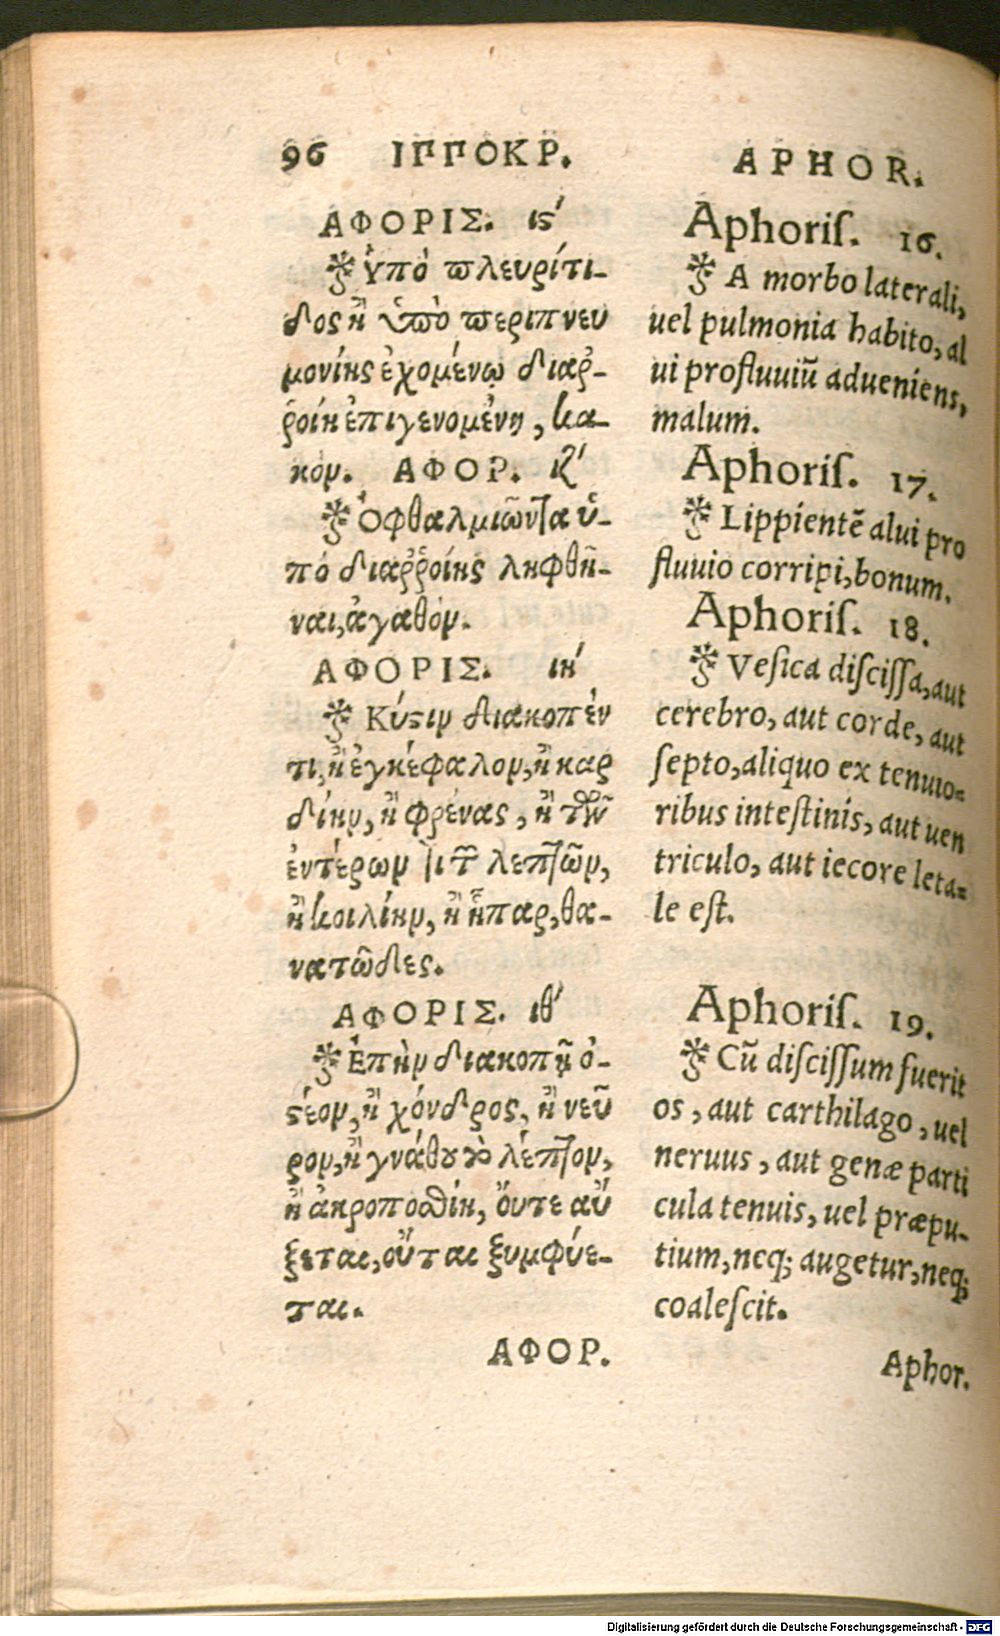 96 ΙΠΠΟΚΡ.
ΑΦΟΡΙΣ. ιϛʹ
Ὑπὸ πλευρίτι-
δος ἢ ὑπὸ περιπνευ
μονίης ἐχομένῳ διαῤ-
ῥοίη ἐπιγενομένη, κα-
κόν. ΑΦΟΡ. ιζʹ
Ὀφθαλμιῶντα ὑ-
πὸ διαῤῥοίης ληφθῆ-
ναι, ἀγαθόν.
ΑΦΟΡΙΣ. ιηʹ
Κύστιν διακοπέν
τι, ἢ ἐγκέφαλον, ἢ καρ
δίην, ἢ φρένας, ἢ τῶν
ἐντέρων τι τῶν λεπτῶν,
ἢ κοιλίην, ἢ ἧπαρ, θα-
νατῶδες.
ΑΦΟΡΙΣ. ιθʹ
Ἐπὴν διακοπῇ ὀ-
στέον, ἢ χόνδρος, ἢ νεῦ
ρον, ἢ γνάθου τὸ λέπτον,
ἢ ἀκροποσθίη, ὄυτε αὔ
ξεται, οὔται ξυμφύε-
ται.
ΑΦΟΡ.
APHOR.
Aphoriſ. 16.
A morbo laterali,
uel pulmonia habito, al
ui profluuiũ adueniens,
malum.
Aphoriſ. 17.
Lippientẽ alui pro
fluuio corripi, bonum.
Aphoriſ. 18.
Veſica diſciſſa, aut
cerebro, aut corde, aut
ſepto, aliquo ex tenuio=
ribus inteſtinis, aut uen
triculo, aut iecore leta=
le eſt.
Aphoriſ. 19.
Cũ diſciſſum fuerit
os, aut carthilago, uel
neruus, aut genæ parti
cula tenuis, uel præpu-
tium, neq; augetur, neq;
coaleſcit.
Aphor.
Digitalisierung gefördert durch die Deutsche Forschungsgemeinschaft - DFG